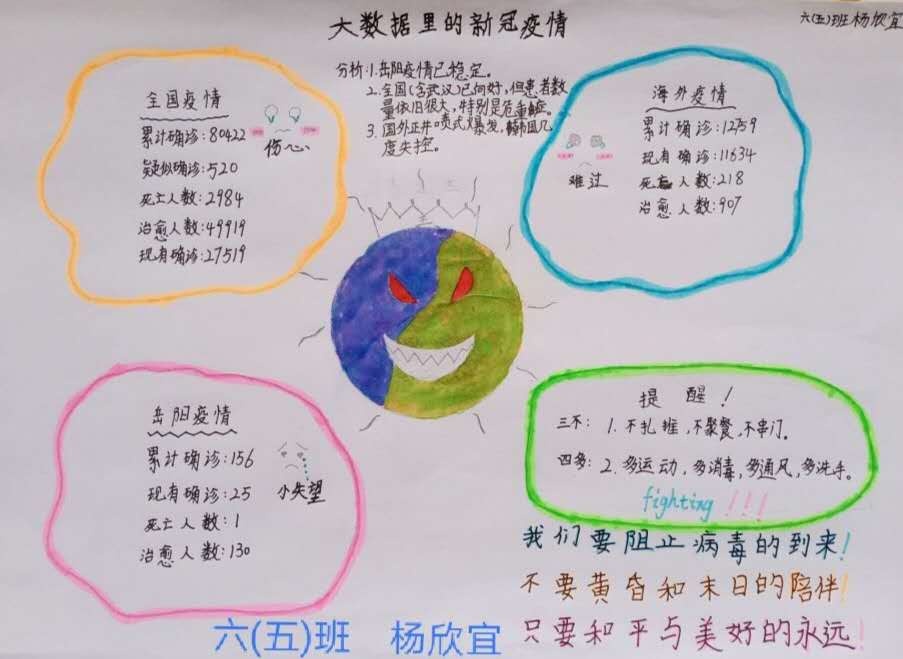 大数据里的新冠疫情
六(五)班杨欣宜
分析:1.岳阳疫情已稳定。
2.全国(含武汉)已向好,但患者数
量依旧很大,特别是危重症。
3.国外正井喷式爆发,韩国几
度失控。
全国疫情
累计确诊:80422
疑似确诊:520
死亡人数:2984
治愈人数:49919
现有确诊:27519
伤心
海外疫情
累计确诊:12759
现有确诊:11634
死亡人数:218
治愈人数:907
难过
岳阳疫情
累计确诊:156
现有确诊:25
死亡人数:1
治愈人数:130
小失望
提醒!
三不:1.不扎堆,不聚餐,不串门。
四多:2.多运动,多消毒,多通风,多洗手。
fighting!!!
我们要阻止病毒的到来!
不要黄昏和末日的陪伴!
只要和平与美好的永远!
六(五)班 杨欣宜